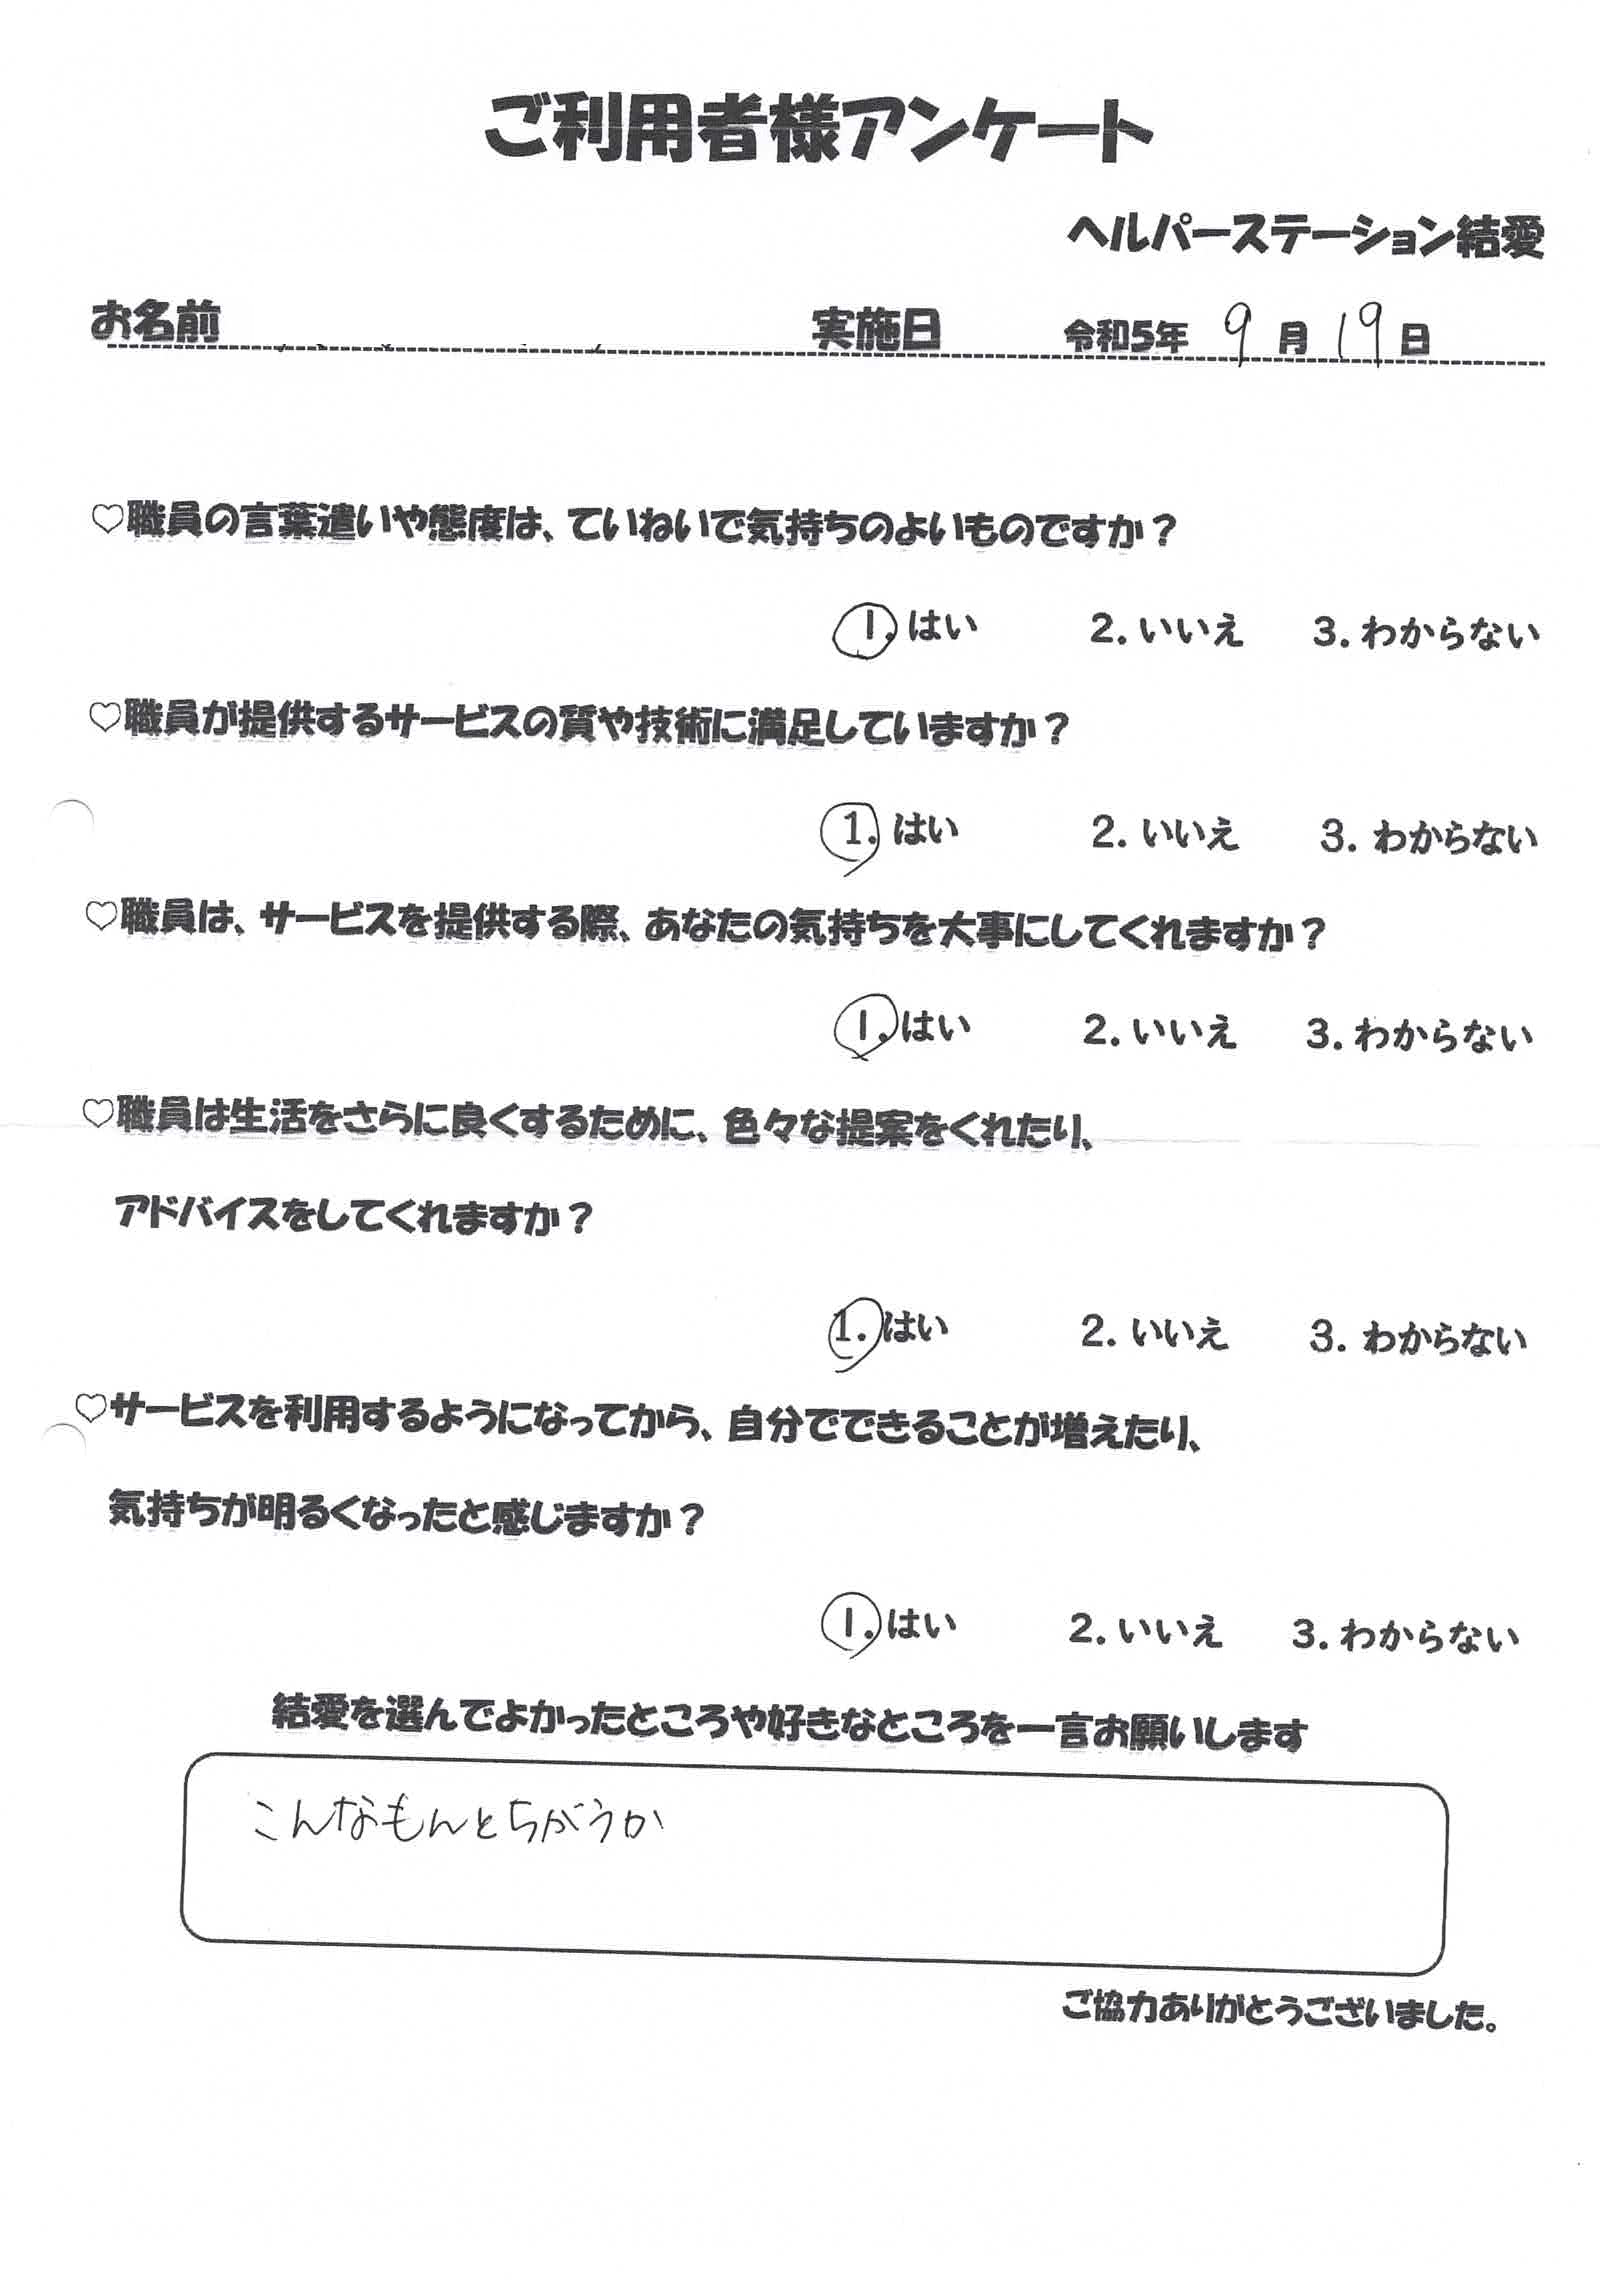 ご利用者様アンケート
ヘルパーステーション結愛
お名前 実施日 令和5年 9月19日
♡職員の言葉遣いや態度は、ていねいで気持ちのよいものですか？
1. はい 2. いいえ 3. わからない
♡職員が提供するサービスの質や技術に満足していますか？
1. はい 2. いいえ 3. わからない
♡職員は、サービスを提供する際、あなたの気持ちを大事にしてくれますか？
1. はい 2. いいえ 3. わからない
♡職員は生活をさらに良くするために、色々な提案をくれたり、
アドバイスをしてくれますか？
1. はい 2. いいえ 3. わからない
♡サービスを利用するようになってから、自分でできることが増えたり、
気持ちが明るくなったと感じますか？
1. はい 2. いいえ 3. わからない
結愛を選んでよかったところや好きなところを一言お願いします
こんなもんとちがうか
ご協力ありがとうございました。